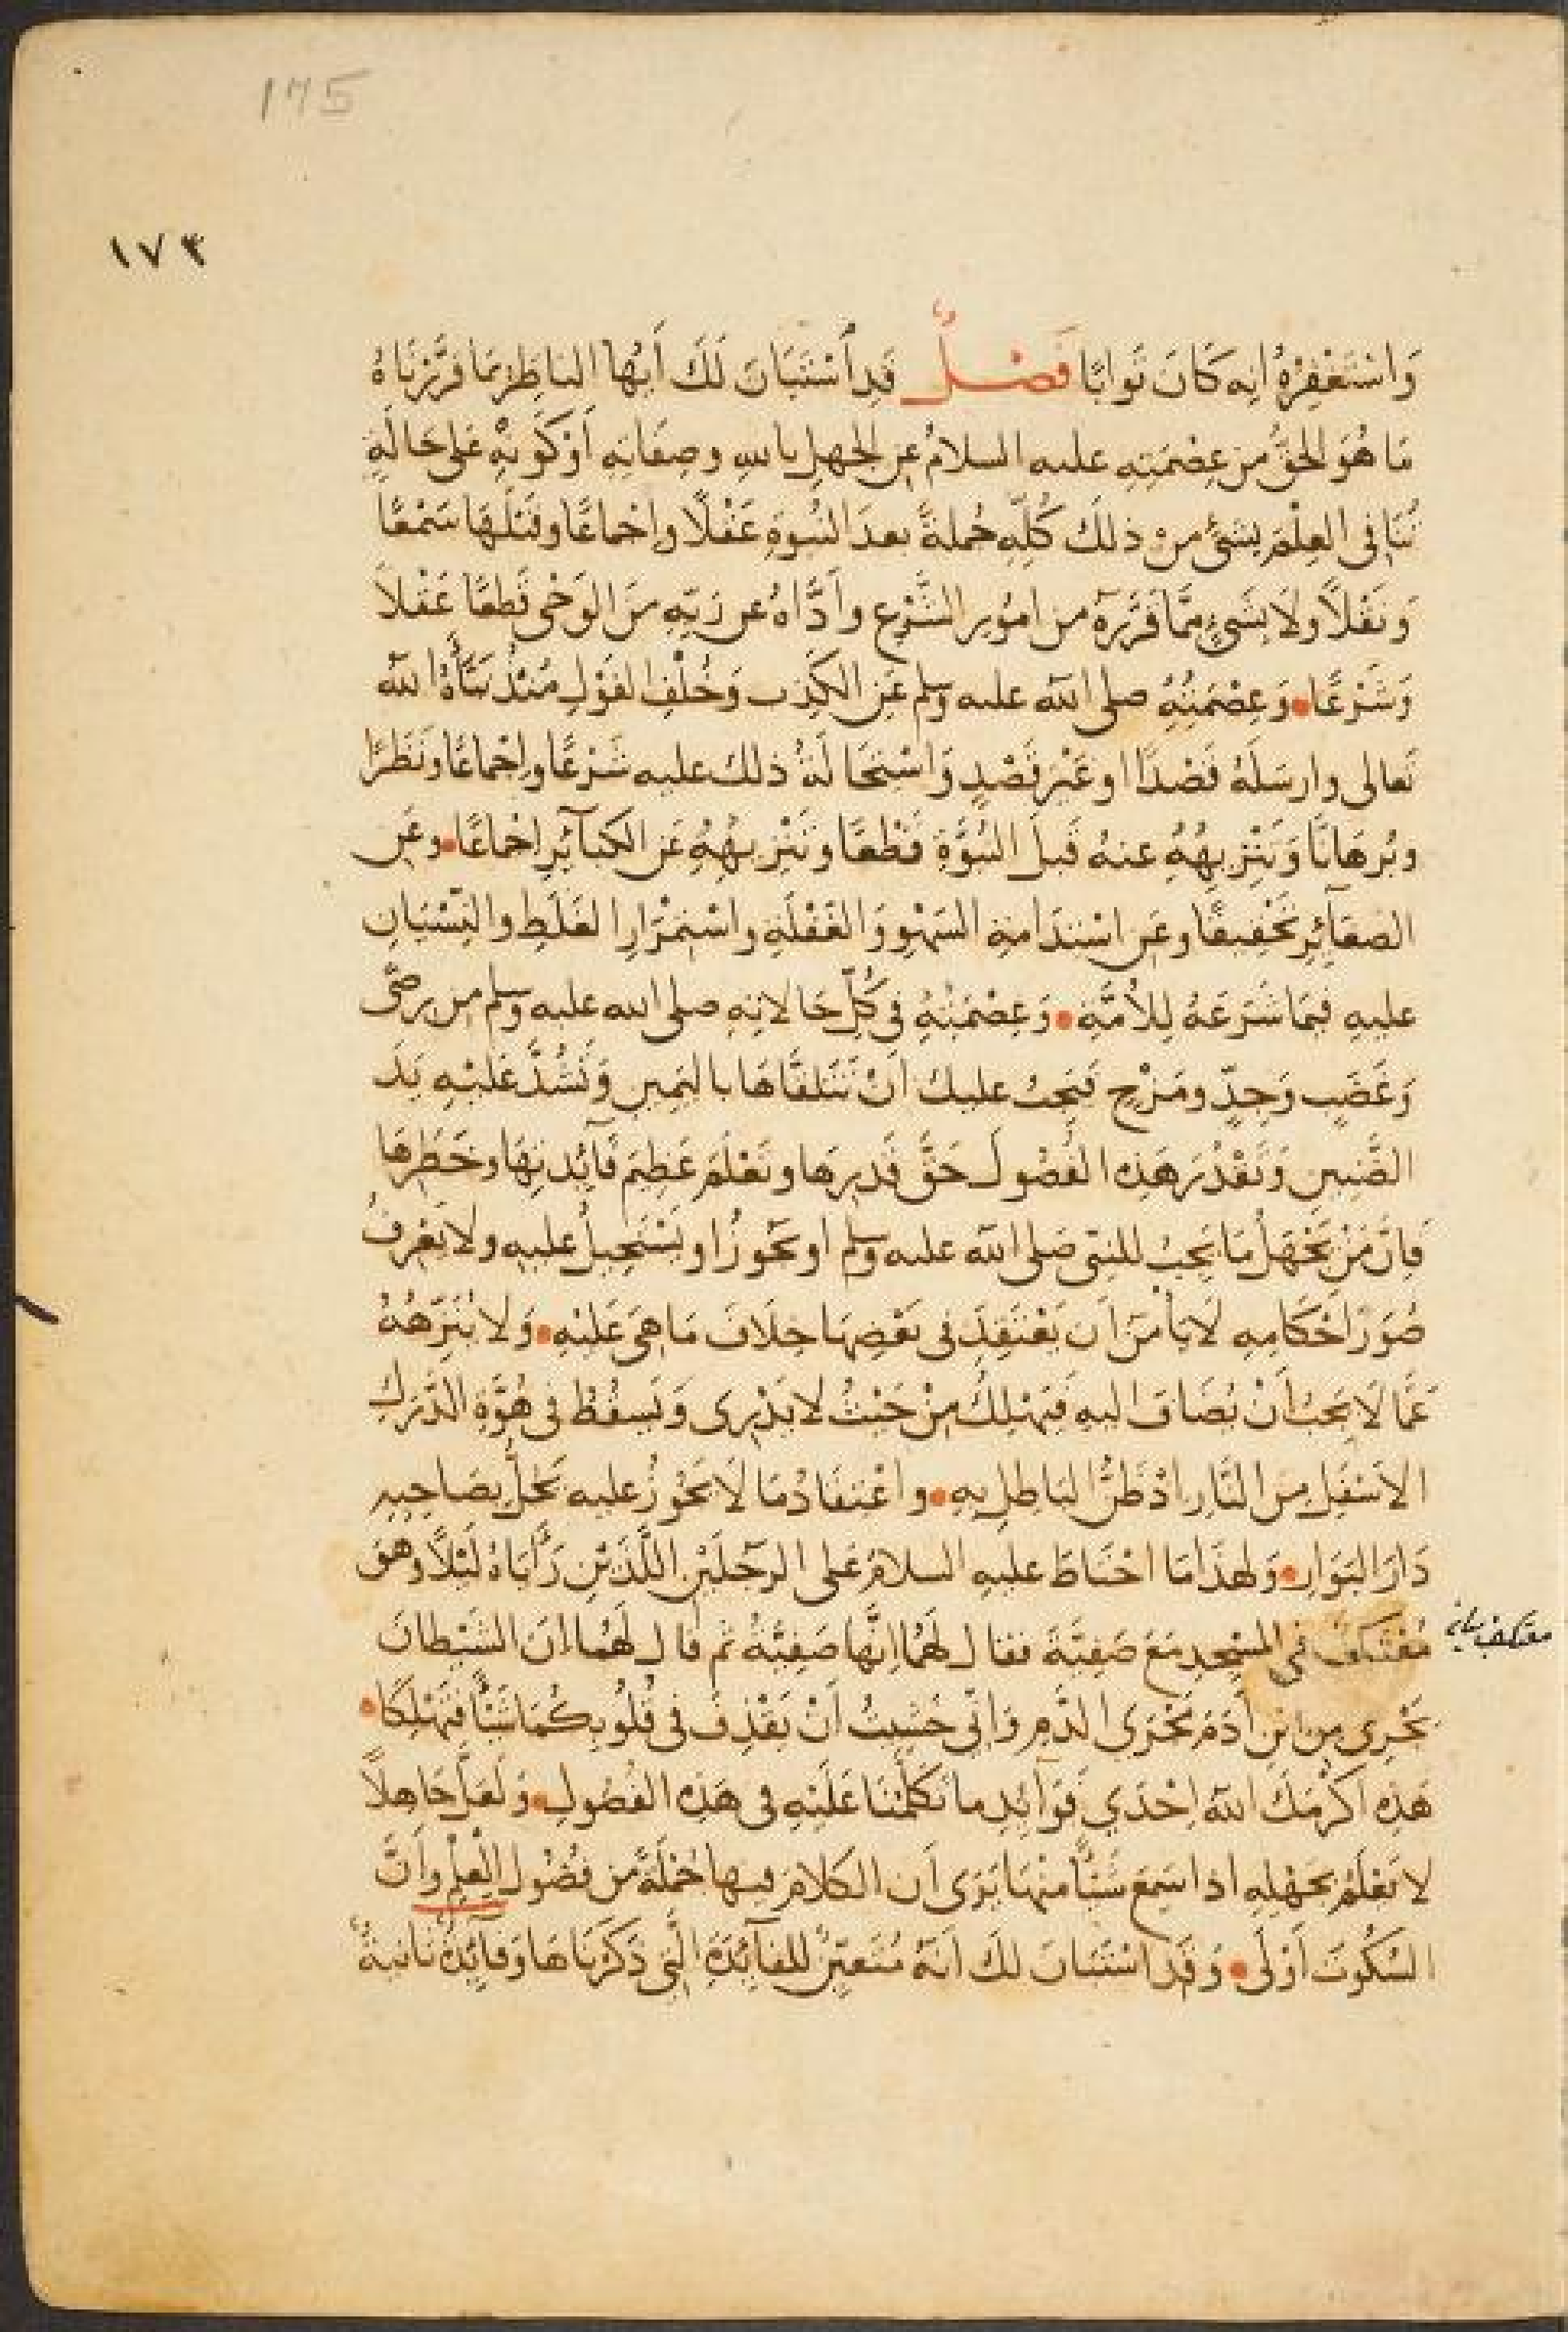 175
١٧٣
وَاسْتَغْفِرْهُ اِنه كَانَ تَوابًا فَصْلٌ قَدِ اسْتَبَانَ لَكَ أَيُّهَا الناظِرُ بمَا قَرَّرْنَاهُ
مَا هُوَ الحَقُّ مِن عِصْمَتِهِ عليه السلامُ عن الجهلِ باللهِ وصِفَاتِهِ أَوْ كَوْنِهِ عَلى حَالَةٍ
تُنَافِى العِلْمَ بِشَىْءٍ مِنْ ذلكَ كُلِّهِ جُملةً بعدَ النُبُوةِ عَقْلًا وإجماعًا وقَبْلَهَا سَمْعًا
وَنَقْلًا ولَا بِشَىءٍ مِمَّا قَرَّرَهُ من امُورِ الشَّرْعِ وأَدَّاهُ عن رَبِّهِ مِنَ الوَحْىِ قَطعًا عَقْلاً
وَشَرْعًا وَعِصْمَتِهُ صلى الله عليه وسلم عَنِ الكَذِبِ وَخُلْفِ القَوْلِ مُنْذُ نَبَّأَهُ اللهُ
تَعالى وارسَلَهُ قَصْدًا او غَيْرَ قَصْدٍ وَاسْتِحَالَةُ ذلك عليه شَرْعًا وإجماعًا ونَظَرًا
وبُرهَانًا وَتَنْزِيهُهُ عنهُ قَبلَ النبُوَّةِ قَطْعًا وتَنْزِيهُهُ عَنِ الكبآئِرِ إجْماعًا وعَنِ
الصغآئِرِ تَحْقِيقًا وعَنِ اسْتِدَامَةِ السَهْوِ وَالغَفْلَةِ واسْتِمْرَارِ الغَلَطِ والنِّسْيَانِ
عليهِ فيمَا شَرَعَهُ لِلأُمَّةِ وَعِصْمَتُهُ فى كُلِّ حَالاتِهِ صلى الله عليه وسلم مِن رِضًى
وَغَضَبٍ وَجِدٍّ ومَزْحٍ فَيَجِبُ عليكَ اَنْ تَتَلَقَّاهَا باليَمِينِ وَتَشُدَّ عَلَيْهِ يَدَ
الضَّنِينِ وَتَقْدُرَ هَذِهِ الفُصُولَ حَقَّ قَدرِهَا وتَعْلَمَ عَظِيمَ فَآئِدتِهَا وخَطَرِهَا
فَاِنَّ مَنْ يَجْهَلُ مَا يَجِبُ للنبىّ صَلى الله عليه وسلم او يَجُوزُ او يَسْتَحِيلُ عليهِ ولا يَعْرِفُ
صُوَرَ اَحْكَامِهِ لَا يَأْمَنُ اَن يَعْتَقِدَ فى بَعْضِهَا خِلَافَ مَا هِىَ عَلَيْهِ وَلا يُنَزِّهُهُ
عَمَّا لَا يَجِبُ اَنْ يُضَافَ اليهِ فَيَهْلِكُ مِنْ حَيْثُ لا يَدْرِى وَيَسقُطُ فى هُوَّةِ الدَّرَكِ
الاَسْفَلِ مِنَ النَّارِ اِذْ ظَنُّ البَاطِلِ بهِ واعْتِقَادُ مَا لَا يَجُوزُ عليه يَحُلُّ بِصَاحِبِهِ
دَارَ البَوَارِ وَلهذَا مَا احْتَاطَ عليهِ السلامُ عَلى الرجُلَيْنِ اللَّذَيْنِ رَأَيَاهُ لَيْلًا وهوَ
مُعْتَكِفٌ فى المسْجِدِ مَعَ صَفِيَّةَ فقال لَهمَا اِنَّها صَفِيَّةُ ثم قَال لَهُمَا اِنَ الشَيْطَانَ
يَجْرِى مِنِ ابْنِ اَدَمَ مَجْرَى الدَّمِ وَاِنّى خَشِيتُ اَنْ يَقْذِفَ فى قُلُوبِكُمَا شَيْأً فَتَهْلِكَا
هَذِهِ اَكْرَمَكَ اللهُ اِحْدَي فَوَآئِدِ ما تَكَلَّمْنَا عَلَيْهِ فى هَذِهِ الفُصُولِ وَلَعَلَّ جَاهِلاً
لا يَعْلَمُ بجَهْلِهِ اذا سَمِعَ شَيْأً مِنْهَا يَرَى اَن الكلامَ فيها جُمْلَةً مِن فُضُولِ العِلْمِ وَاَنَّ
السُكُوتَ اَوْلَى وَقَد اسْتَبَانَ لكَ اَنَّهُ مُتَعَيِّنٌ للفآئِدَةِ الَّتِى ذَكَرْنَاهَا وَفَآئِدَةٌ ثَانيةٌ